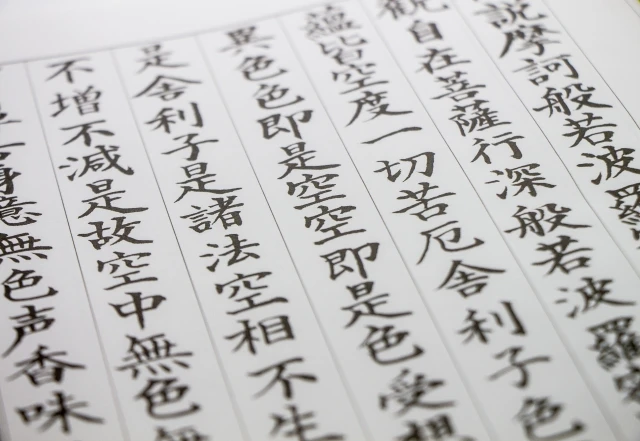 説摩訶般若波羅
観自在菩薩行深般若波羅
蘊皆空度一切苦厄舎利子色
異色色即是空空即是色受想
是舎利子是諸法空相不生
不増不減是故空中無色
舌身意無色声香味